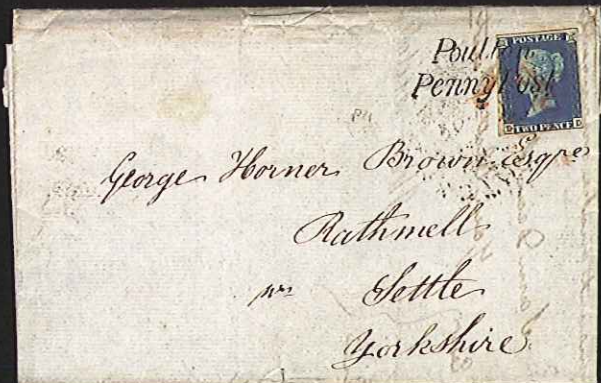 Poulton
Penny Post
POSTAGE
TWO PENCE
George Horner Brown Esqre
Rathmell
nr Settle
Yorkshire